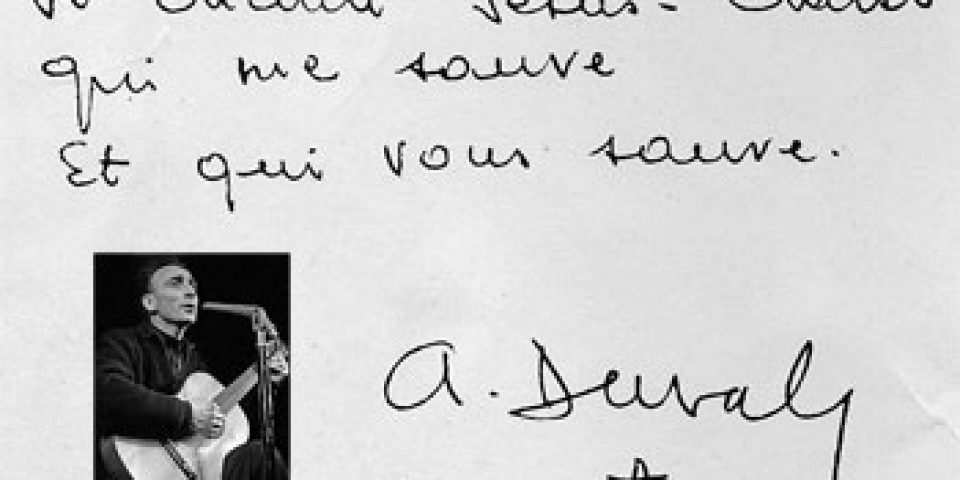 Jésus-Christ
qui me sauve
Et qui vous sauve.
A. Duval